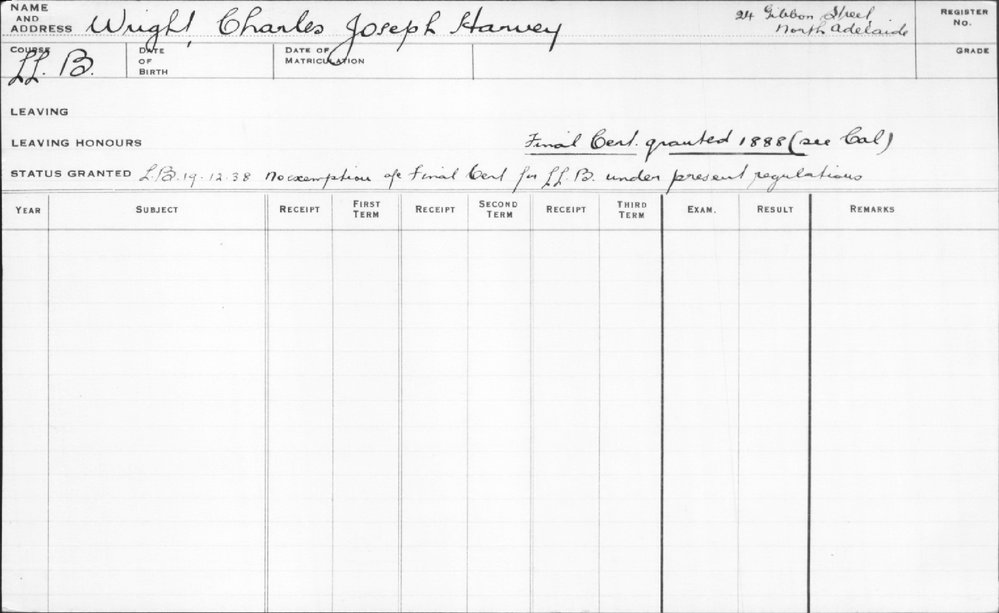 NAME AND ADDRESS Wright, Charles Joseph Harvey 24 Gibbon Street, North Adelaide REGISTER No.
COURSE LL. B. DATE OF BIRTH DATE OF MATRICULATION GRADE
LEAVING
LEAVING HONOURS Final Cert. granted 1888 (see Cal)
STATUS GRANTED 19.12.38 No exemption of Final Cert for LL. B. under present regulations
YEAR SUBJECT RECEIPT FIRST TERM RECEIPT SECOND TERM RECEIPT THIRD TERM EXAM. RESULT REMARKS